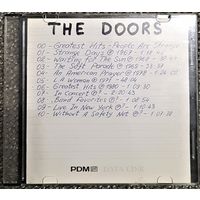 THE DOORS
00 - Greatest Hits - People Are Strange
01 - Strange Days ℗ 1967 - 1:44
02 - Waiting For The Sun ℗ 1968 - 30:47
03 - The Soft Parade ℗ 1969 - 33:39
04 - An American Prayer ℗ 1978 - 1:24:02
05 - L.A Woman ℗ 1971 - 48:04
06 - Greatest Hits ℗ 1980 - 1:09:30
07 - In Concert ℗ 2:21:43
08 - Band Favorites - 1:08:54
09 - Live In New York - 1:10:43
10 - Without A Safety Net ℗ - 1:07:38
PDM
DATA LINE